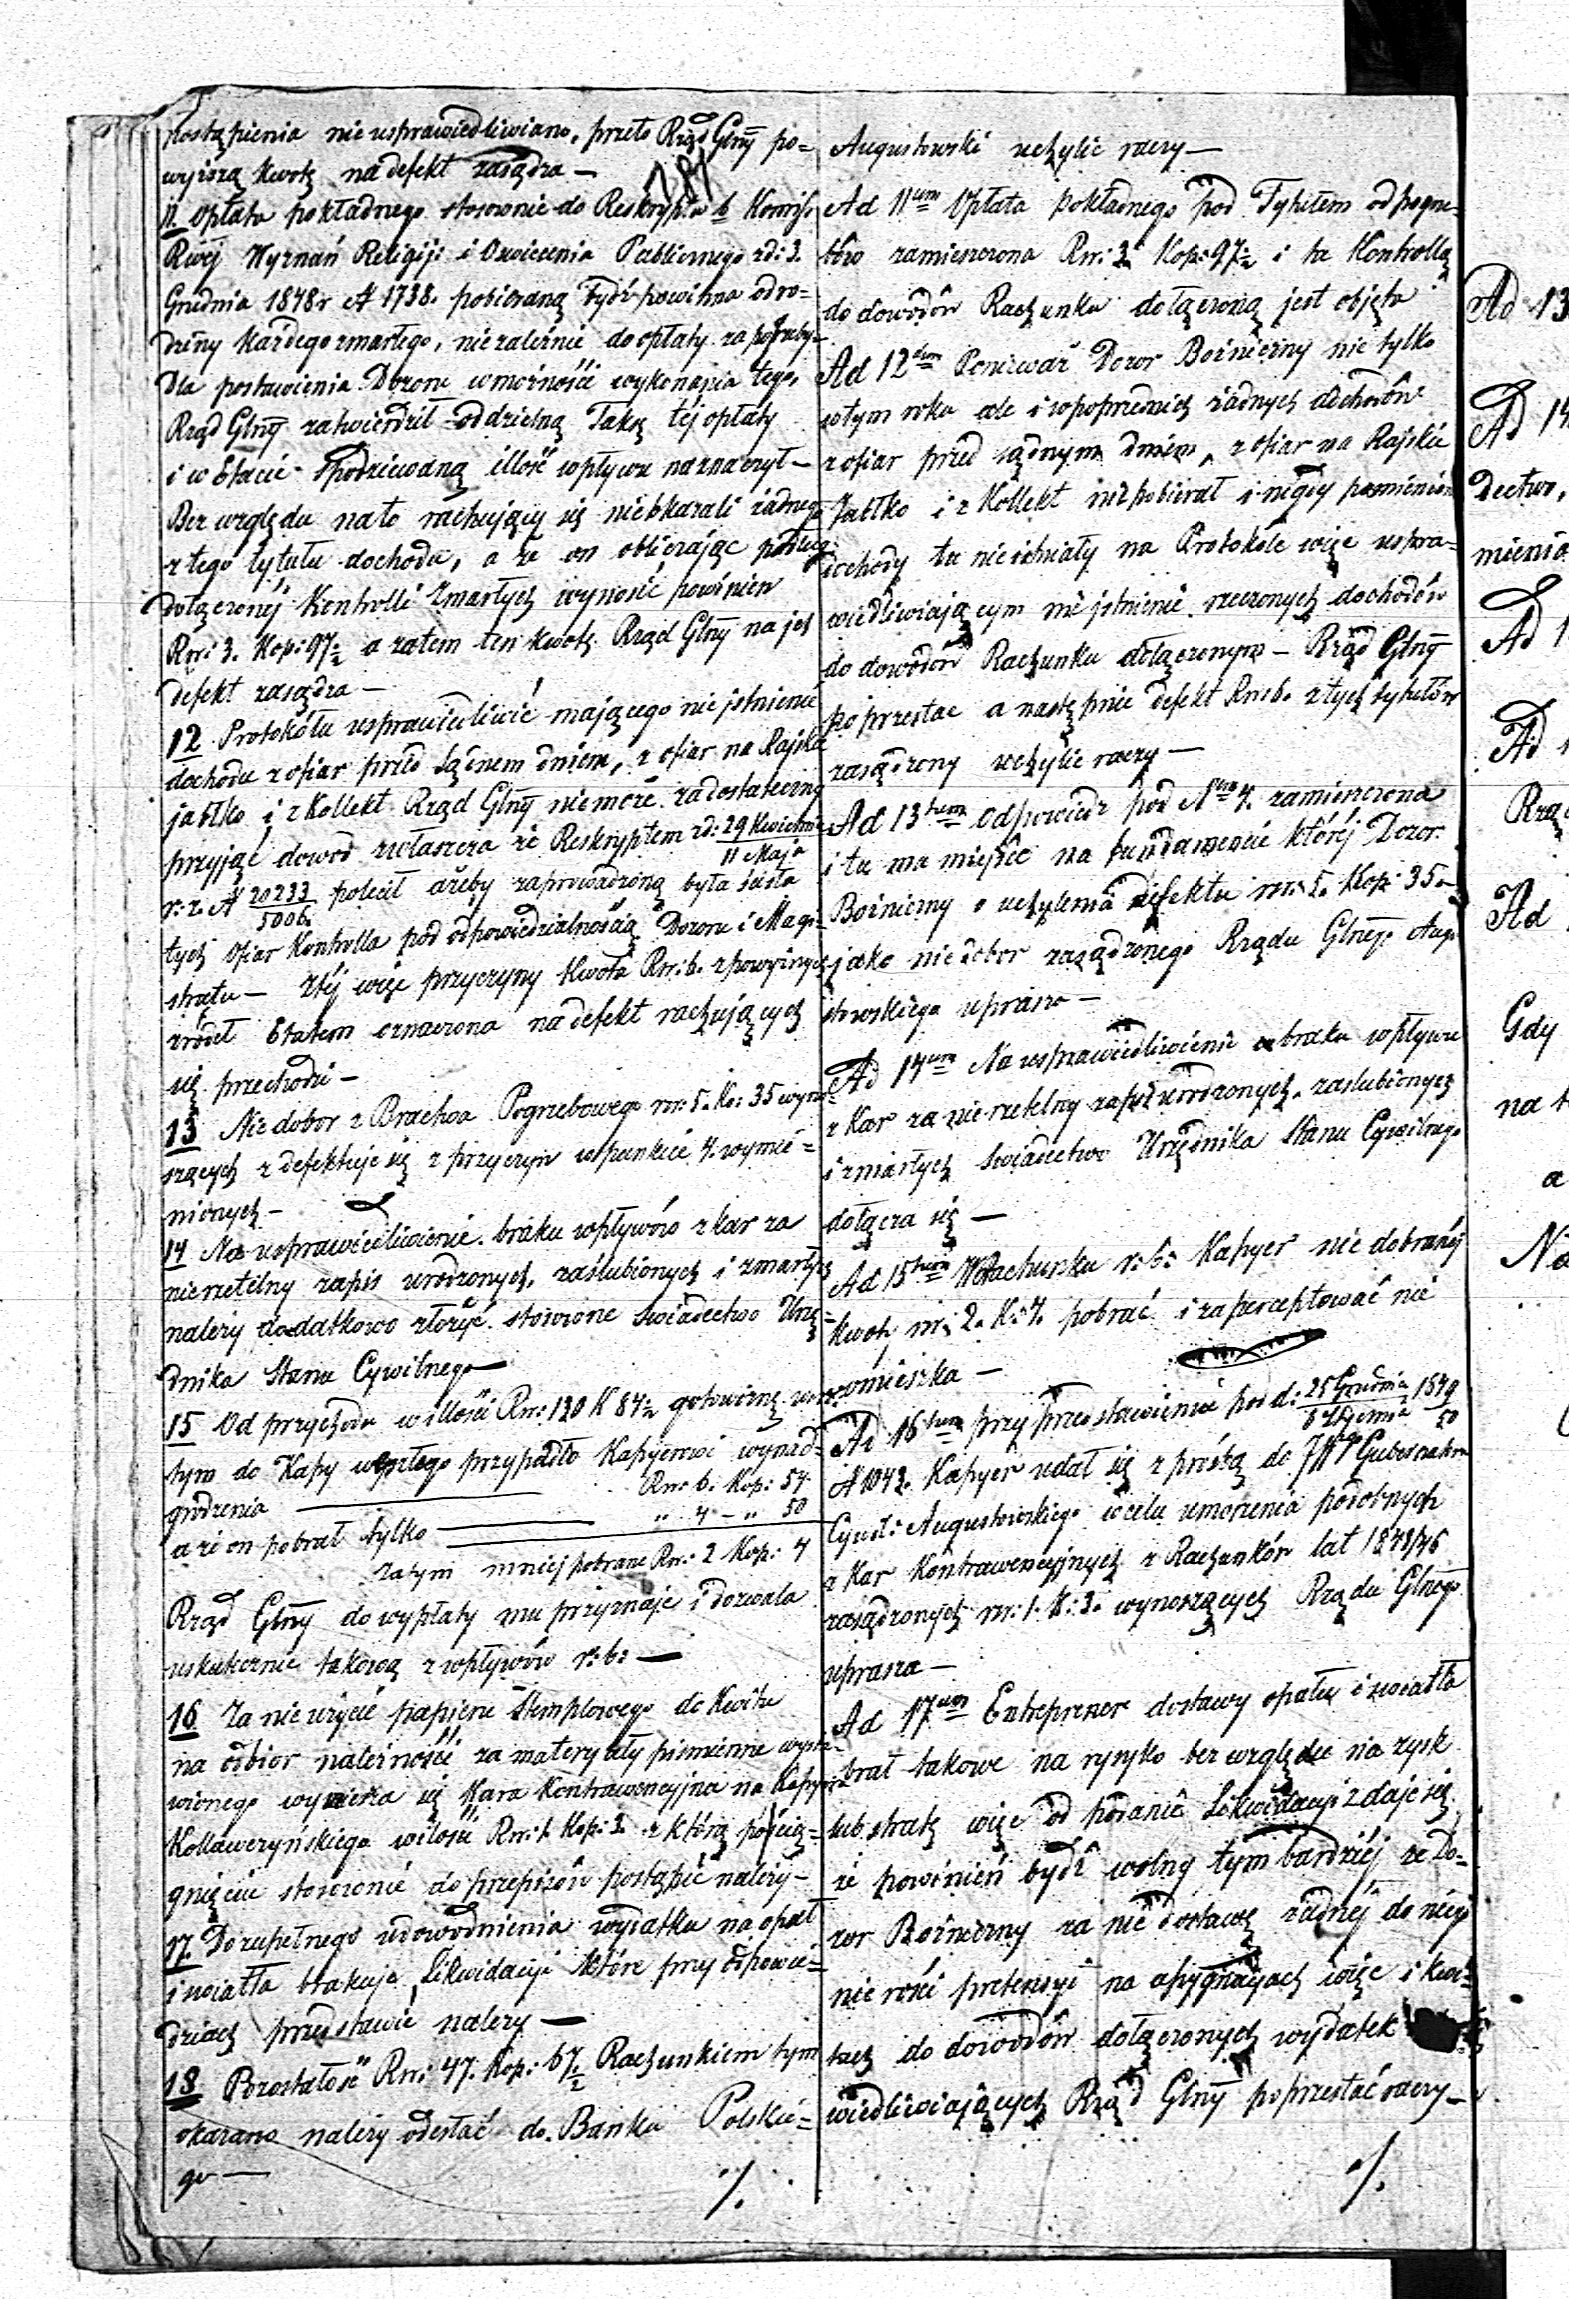 postąpienia nie usprawiedliwiano, przeto Rząd Glny po=
wyższą kwotę na defekt zasądza —
11. Opłata pokładnego stosownie do Reskryptu b Kommis.
Rwéj Wyznań Religij: i Oswiecenia Publicznego zd: 3.
Grudnia 1848r N 1738. pobieraną bydź powinna od ro=
dziny każdego zmarłego, niezależnie do opłaty za pogrzeby.
Dla postawienia Dozoru w możności wykonania tego,
Rząd Glny zatwierdził oddzielną Taxę téj opłaty
i w Etacie spodziewaną illość wpływu naznaczył —
Bez względu na to rachujący się nieokazali żadnego
z tego tytułu dochodu, a że on obliczając podług
dołączonéj Kontrolli Zmarłych wynosić powinien
Rsr: 3. Kop: 97½ a zatem ten kwotę Rząd Glny na jej
defekt zasądza —
12 Protokółu usprawiedliwić mającego nie istnienie
dochodu z ofiar przed Sądnem dniem, z ofiar na Rajskie
jabłko i z Kollekt Rząd Glny niemoże za dostateczny
przyjąć dowod zwłaszcza że Reskryptem zd: 29 Kwietnia / 11 Maja
r: z. N 20233/5006 polecił ażeby zaprowadzoną była ścisła
tych ofiar Kontrolla pod odpowiedzialnością Dozoru i Magi=
stratu — Z téj więc przyczyny kwota Rsr: 6. z powyższych
zrodeł Etatem oznaczona na defekt rachujących
się przechodzi —
13 Niedobor z Bractwa Pogrzebowego rsr: 5. Ko: 35 wyno=
szących zdefektuje się z przyczyn w punkcie 4. wymie=
nionych —
14 Na usprawiedliwienie braku wpływów z kar za
nierzetelny zapis urodzonych, zaślubionych i zmarłych
należy dodatkowo złożyć stosowne Swiadectwo Urzę=
dnika Stanu Cywilnego —
15 Od przychodu w illości Rsr: 130 K 84½ gotowizną
tym do Kassy przypadło Kassyerowi wynad=
grodzenia — Rsr: 6. Kop: 54
a że on pobrał tylko — „ 4 — „ 50
zatym mniej pobrane Rsr: 2 Kop: 4
Rząd Glny do wypłaty mu przyznaje i dozwala
uskutecznić takową z wpływów r: b: —
16 Za nie użycie papieru Stemplowego do Kwitu
na odbior należności za materyały piśmienne wysta=
wionego wymierza się Kara Kontrawencyjna na Kassyera
Kollaweryńskiego w ilości Rsr: 1. Kop: 3. z którą po ścią=
gnięciu stosownie do przepisów postąpić należy —
17. Do zupełnego udowodnienia wydatku na opał
i swiatło brakuje Likwidacyi które przy odpowie=
dziach przedstawić należy —
18 Pozostałość Rsr: 47. Kop: 67½ Rachunkiem tym
okazana należy odesłać do Banku Polskie=
go —
./.
Augustowski uchylić raczy —
Ad 11um Opłata pokładnego pod Tytułem od pogrze=
bów zamieszczona Rsr: 3. Kop: 97½ i ta Kontrollą
do dowodów Rachunku dołączoną jest objęta
Ad 12um Ponieważ Dozor Bożniczny nie tylko
w tym roku ale i w poprzednich żadnych dochodów
z ofiar przed sądnym dniem, z ofiar na Rajskie
Jabłko i z Kollekt nie pobierał i nigdy pomienione
dochody tu nie istniały na Protokóle więc uspra=
wiedliwiającym nie istnienie rzeczonych dochodów
do dowodów Rachunku dołączonym — Rząd Glny
poprzestać a następnie defekt Rsr 6. z tych tytułów
zasądzony uchylić raczy —
Ad 13um odpowiedź pod Nrem 4. zamieszczona
i tu ma miejsce na fundamencie któréj Dozor
Bożniczny o uchylenie defektu rsr. 5. Kop: 35.
jako niedobor zasądzonego Rządu Glnego Augu
stowskiego uprasza —
Ad 14um Na usprawiedliwienie braku wpływu
z Kar za nierzetelny zapis urodzonych, zaslubionych
i zmarłych Swiadectwo Urzędnika Stanu Cywilnego
dołącza się —
Ad 15um W Rachunku r: b: Kassyer nie dobranéj
kwoty rsr: 2. K: 4. pobrać i zaperceptować nie
omieszka —
Ad 16um przy przedstawieniu pod d: 25 Grudnia / 6 Stycznia 1849/50
N 1042. Kassyer udał się z prośbą do JW Gubernatora
Cywil: Augustowskiego w celu umorzenia podobnych
z Kar Kontrawencyjnych z Rachunków lat 1843/46
zasądzonych rsr: 1. K: 3. wynoszących Rządu Glnego
uprasza —
Ad 17um Entreprener dostawy opału i swiatła
brał takowe na ryzyko bez względu na zysk
lub stratę więc od podania Likwidacyi zdaje się
że powinień bydź wolny tym bardziéj że Do=
zor Bożniczny za nie dostawę żadnéj do niego
nie rości pretensyi na assygnacyach więc i kwi=
tach do dowodów dołączonych wydatek
wiedliwiających Rząd Glny poprzestać raczy —
./.
Ad 13
Ad 14
dectwo,
mienio
Ad 1
Ad 1
Rzą
Ad
Gdy
na
a
Na